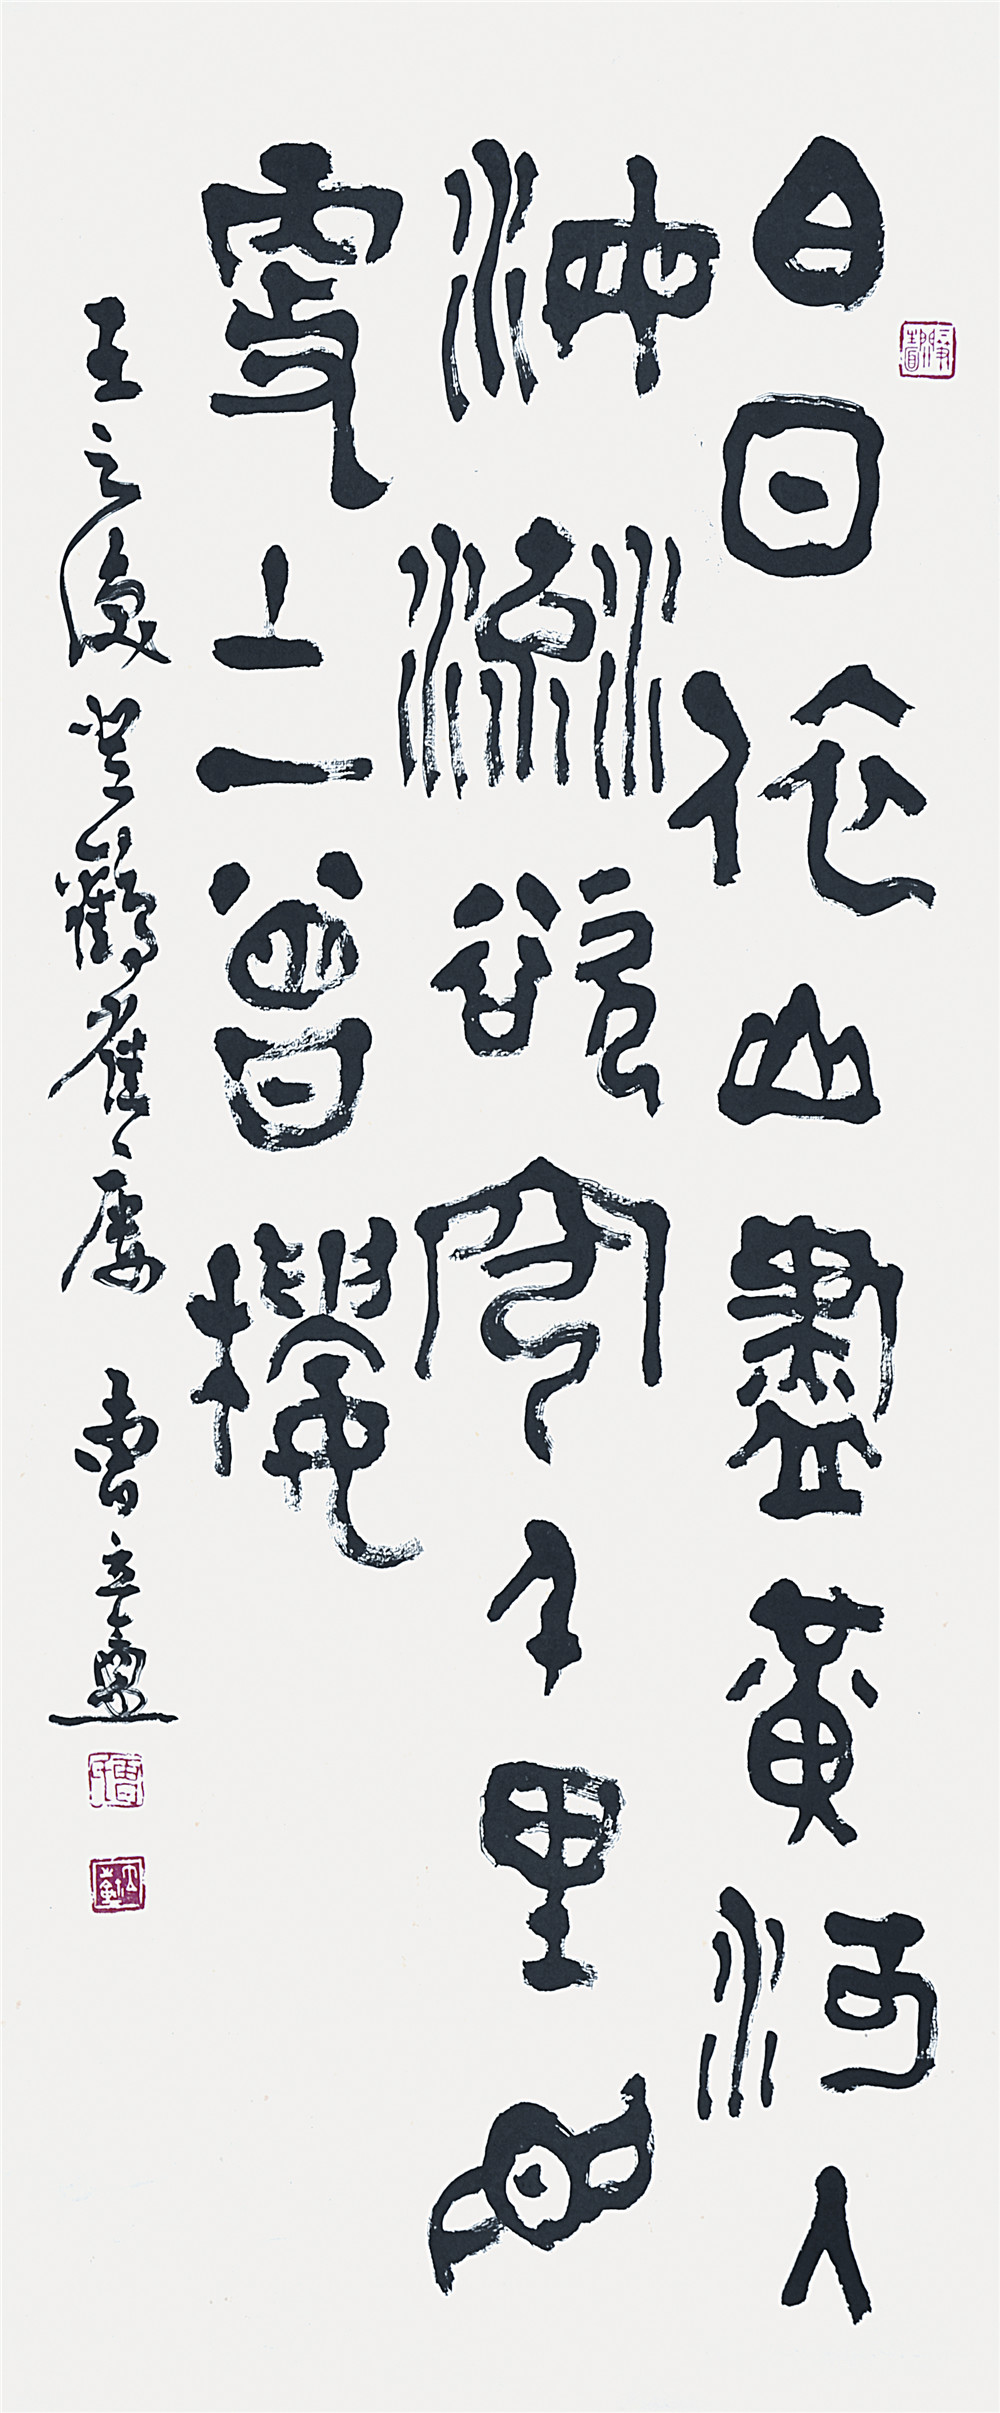 白日依山盡黃河入
海流欲窮千里目
更上一曾樓
王之渙登鸛雀廔 曹立盦